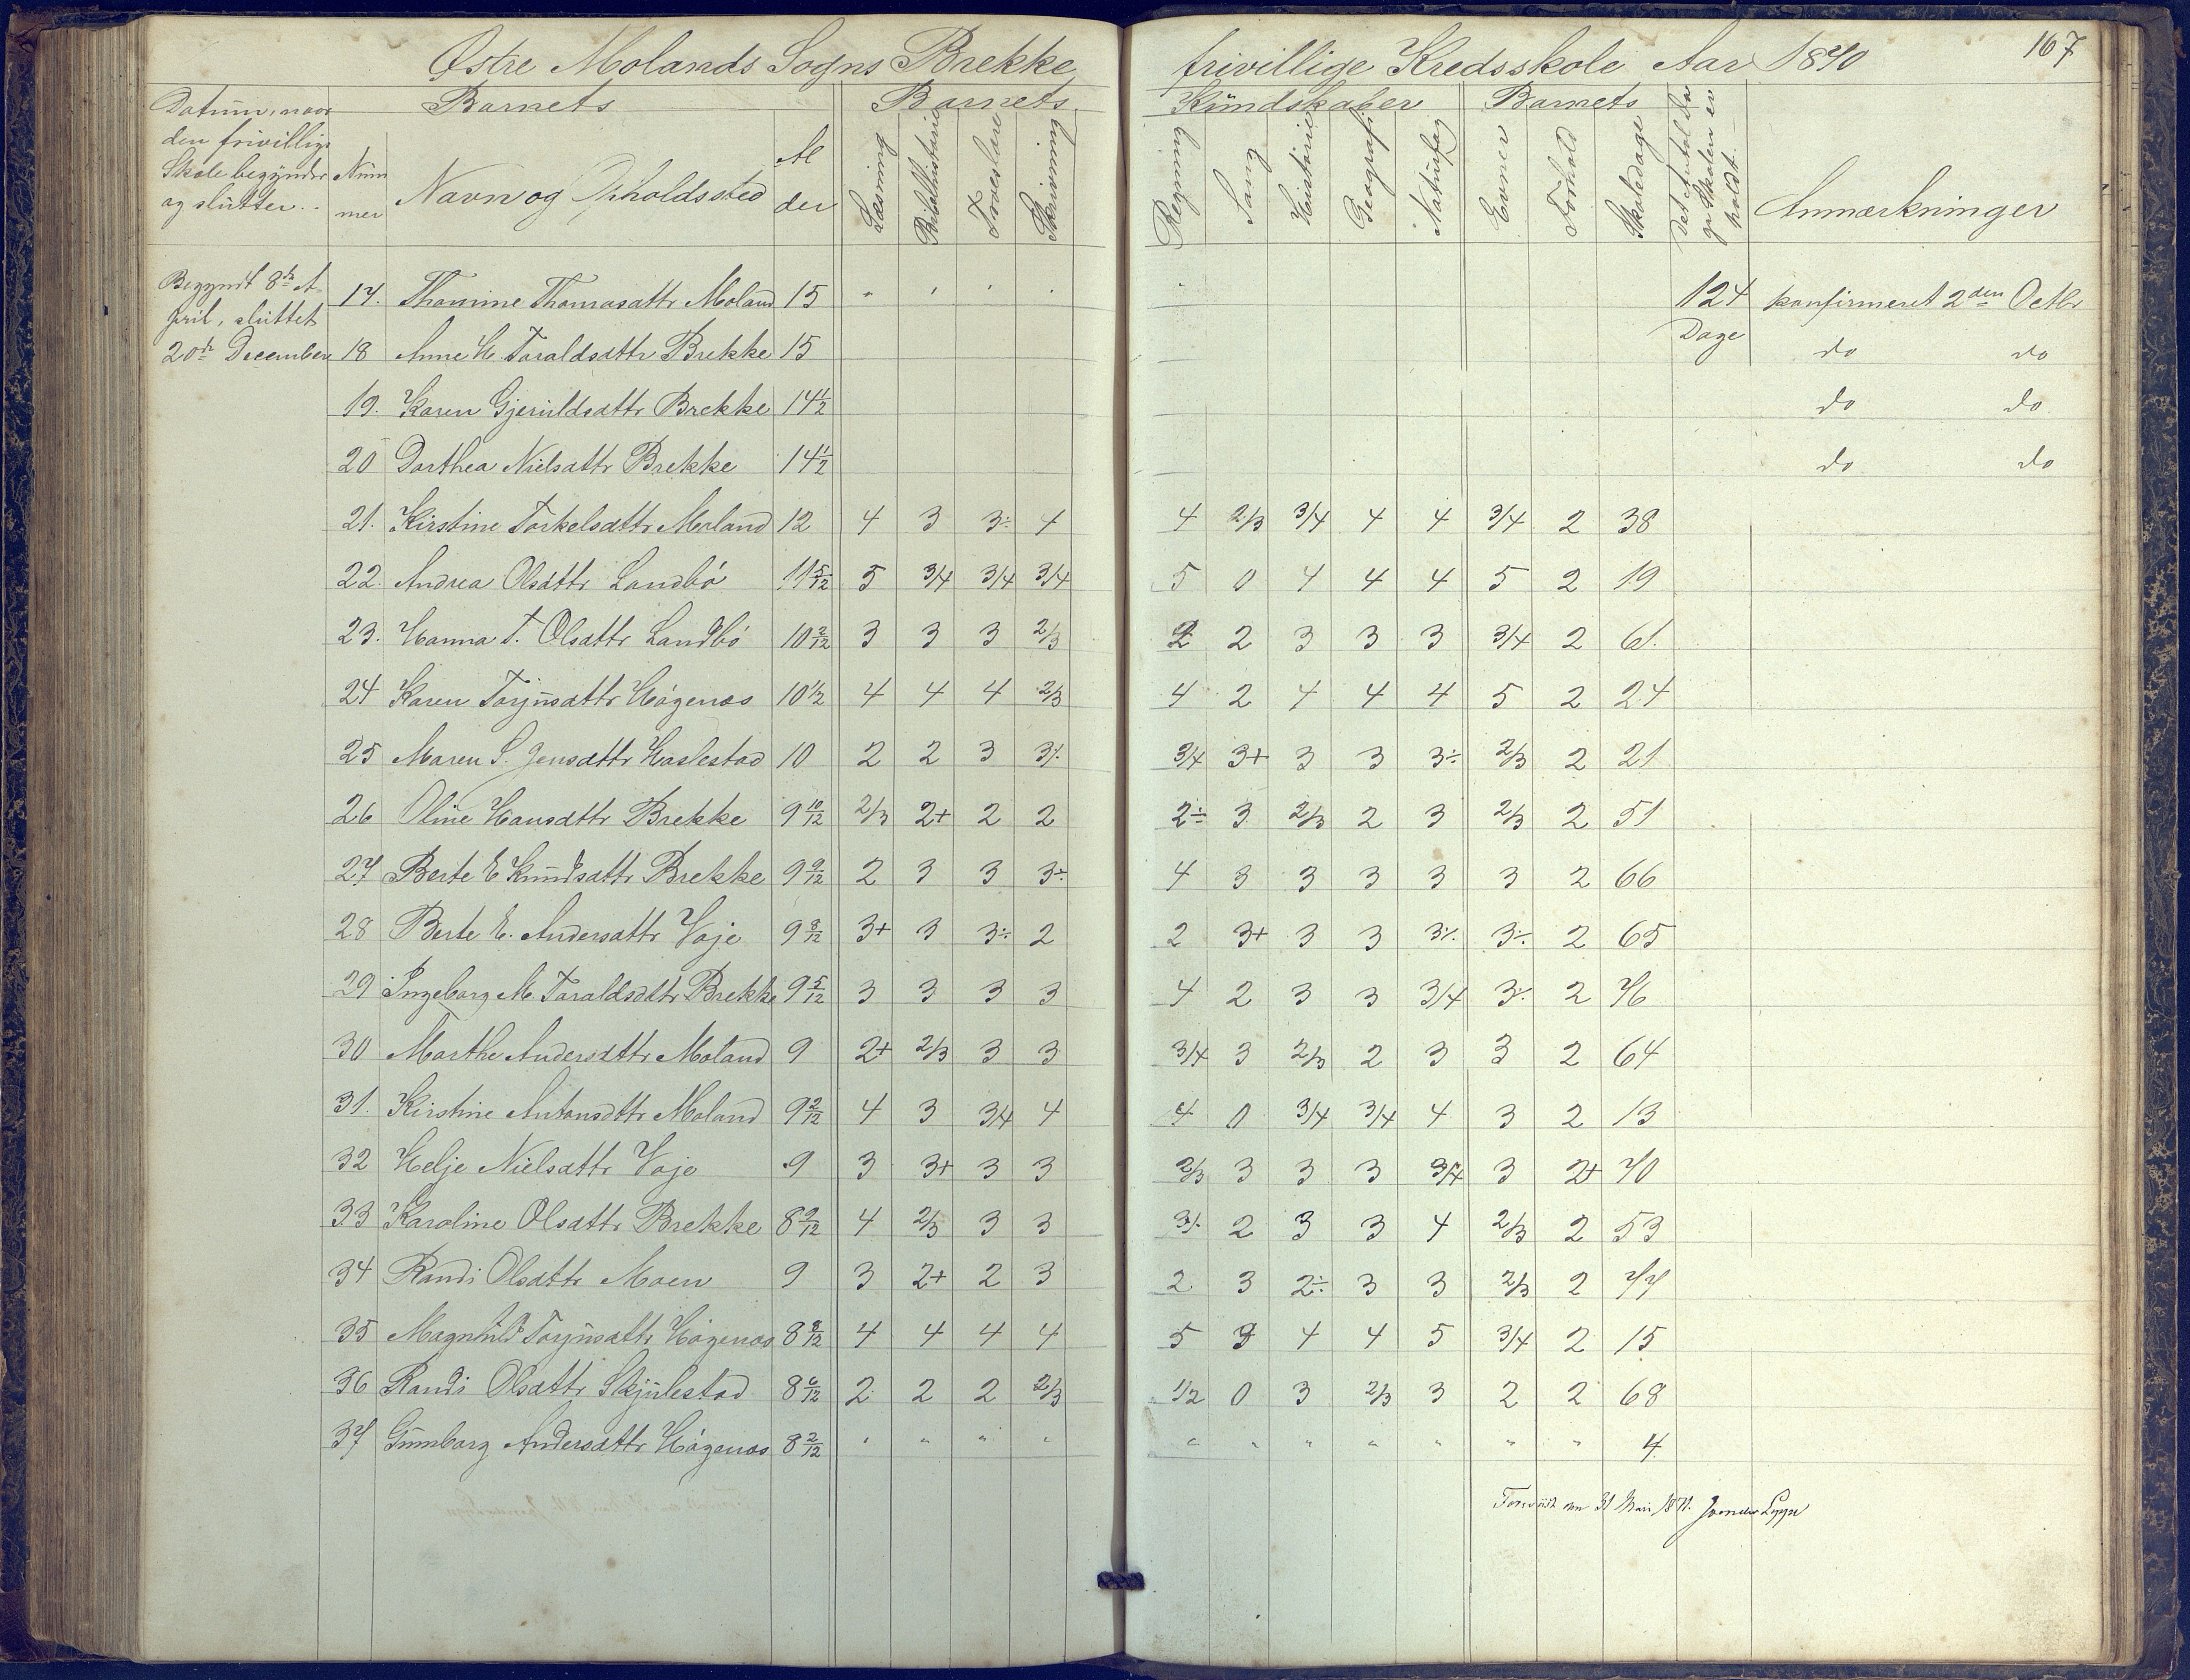 Østre Molands Sogns Brekke frivillige Kredsskole Aar 1870 167
Datum, naar den frivillige Skole begynder og slutter.
Barnets
Nummer
Navn og Opholdssted
Alder
Barnets Kundskaber
Læsning
Bibelhistorie
Troeslære
Skrivning
Regning
Sang
Historie
Geografi
Naturfag
Barnets
Evner
Forhold
Skoledage
Det Antal Dage Skolen er holdt.
Anmærkninger
Begyndt 8de April, sluttet 20de December
17. Thomine Thomasdttr Moland 15 " " " " 124 Dage konfirmeret 2den Octbr
18 Anne M. Taraldsdttr Brekke 15 do do
19. Karen Gjeruldsdttr Brekke 14 1/2 do do
20 Dorthea Nielsdttr Brekke 14 1/2 do do
21. Kirstine Torkelsdttr Moland 12 4 3 3÷ 4 4 2/3 3/4 4 4 3/4 2 38
22. Andrea Olsdttr Landbö 11 5/12 5 3/4 3/4 3/4 5 0 4 4 4 5 2 19
23. Hanna T. Olsdttr Landbö 10 2/12 3 3 3 2/3 2 2 3 3 3 3/4 2 61.
24 Karen Torjusdttr Högenæs 10 1/2 4 4 4 2/3 4 2 4 4 4 5 2 24
25 Maren S. Jensdttr Haslestad 10 2 2 3 3÷ 3/4 3+ 3 3 3÷ 2/3 2 21
26 Oline Hansdttr Brekke 9 10/12 2/3 2+ 2 2 2÷ 3 2/3 2 3 2/3 2 51
27 Berte E Knudsdttr Brekke 9 9/12 2 3 3 3÷ 4 3 3 3 3 3 2 66
28 Berte E. Andersdttr Voje 9 8/12 3+ 3 3÷ 2 2 3+ 3 3 3÷ 3÷ 2 65
29 Ingeborg M. Taraldsdttr Brekke 9 5/12 3 3 3 3 4 2 3 3 3/4 3÷ 2 76
30 Marthe Andersdttr Moland 9 2+ 2/3 3 3 3/4 3 2/3 2 3 3 2 64
31. Kirstine Antonsdttr Moland 9 2/12 4 3 3/4 4 4 0 3/4 3/4 4 3 2 13
32 Helje Nielsdttr Voje 9 3 3+ 3 3 2/3 3 3 3 3/4 3 2+ 70
33 Karoline Olsdttr Brekke 8 9/12 4 2/3 3 3 3÷ 2 3 3 4 2/3 2 53
34 Randi Olsdttr Moen 9 3 2+ 2 3 2 3 2÷ 3 3 2/3 2 77
35 Magnhild Torjusdttr Högenæs 8 8/12 4 4 4 4 5 3 4 4 5 3/4 2 15
36 Randi Olsdttr Skjulestad 8 6/12 2 2 2 2/3 1/2 0 3 2/3 3 2 2 68
37 Gunborg Andersdttr Högenæs 8 2/12 " " " " " " " " " " " 4
31 Mai 1871.